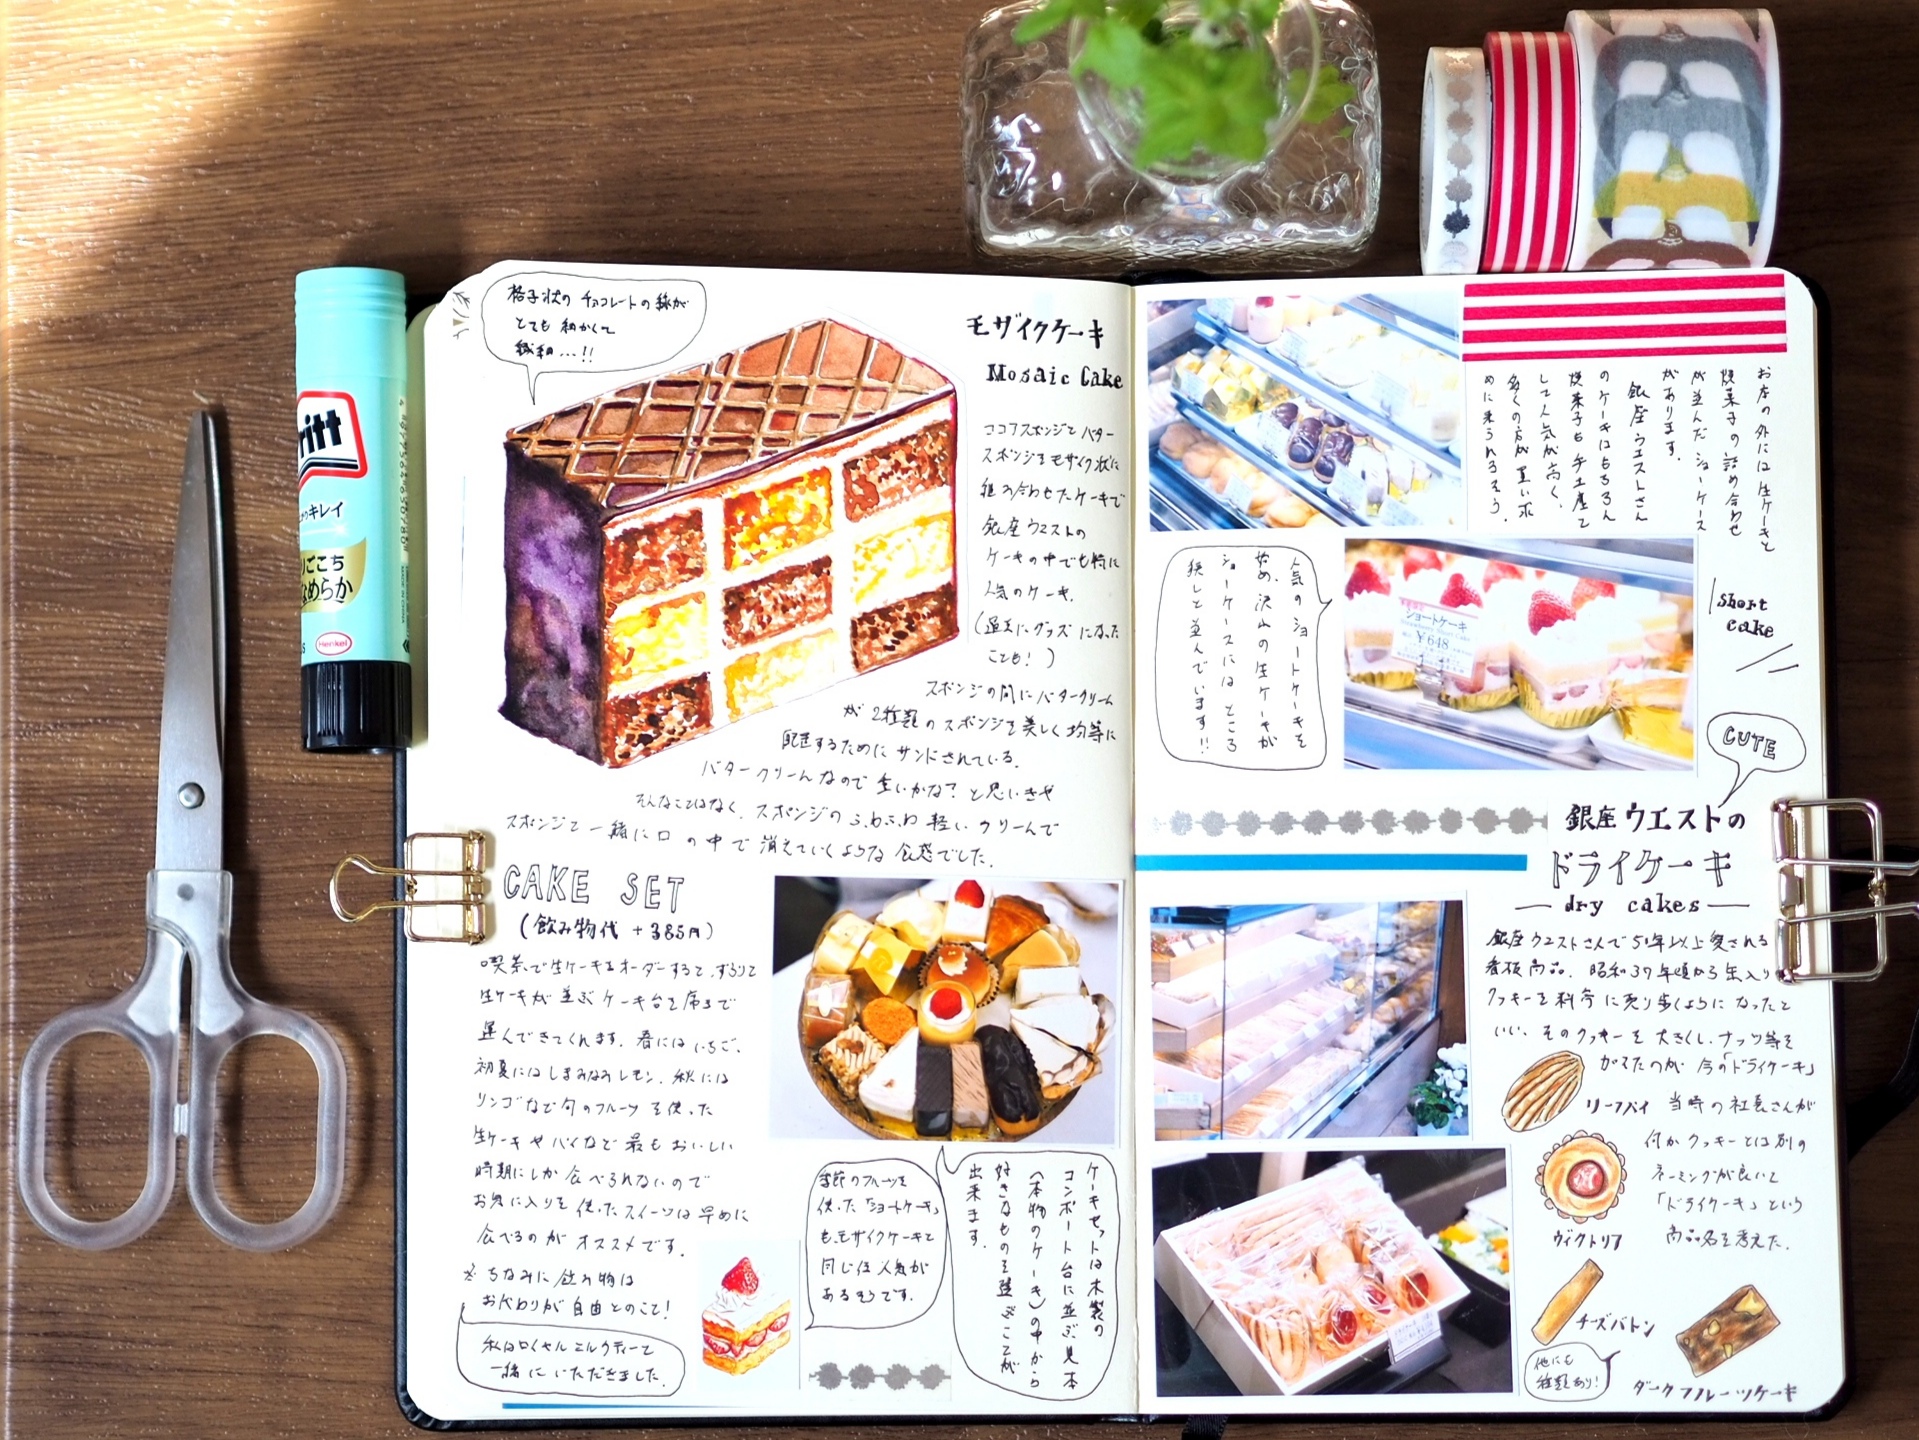 格子状の チョコレートの線が
とても 細かくて
繊細…!!
モザイクケーキ
Mosaic Cake
ココアスポンジとバター
スポンジをモザイク状に
組み合わせたケーキで
銀座ウエストの
ケーキの中でも特に
人気のケーキ.
(過去にグッズになった
ことも! )
スポンジの間にバタークリーム
が 2種類のスポンジを美しく均等に
配置するために サンドされている.
バタークリームなので 重いかな? と思いきや
そんなことはなく, スポンジの ふわふわ 軽い クリームで
スポンジと一緒に口 の中で 消えていくような 食感でした.
CAKE SET
(飲み物代 +385円)
喫茶で生ケーキをオーダーすると,ずらりと
生ケーキが 並ぶ ケーキ台を席まで
運んできてくれます. 春には いちご,
初夏にはしまなみレモン, 秋には
リンゴなど旬のフルーツ を使った
生ケーキやパイなど 最も おいしい
時期にしか 食べられないので
お気に入りを 使ったスイーツは早めに
食べるのが オススメです.
※ ちなみに 飲み物は
おかわりが 自由とのこと!
私はロイヤルミルクティーと
一緒に いただきました.
季節のフルーツを
使った「ショートケーキ」
も,モザイクケーキと
同じ位 人気が
あるそうです.
ケーキセットは木製の
コンポート台に並ぶ見本
(本物のケーキ)の中から
好きなものを選ぶことが
出来ます.
お店の外には生ケーキと
焼菓子の詰め合わせ
が並んだショーケース
があります.
銀座ウエストさん
のケーキはもちろん
焼菓子も手土産と
して人気が高く,
多くの方が買い求
めに来られるそう.
人気のショートケーキを
始め,沢山の生ケーキが
ショーケースにはところ
狭しと並んでいます!!
ショートケーキ
Strawberry Short Cake
¥648
Short
cake
CUTE
銀座ウエストの
ドライケーキ
dry cakes
銀座ウエストさんで50年以上愛される
看板商品. 昭和37年頃から缶入り
クッキーを料亭に売り歩くように なったと
いい, そのクッキーを大きくし,ナッツ等を
のが 今の「ドライケーキ」
リーフパイ
当時の社長さんが
何かクッキーとは別の
ネーミングが良いと
「ドライケーキ」という
商品名を考えた.
ヴィクトリア
チーズバトン
他にも
種類あり!
ダークフルーツケーキ
Pritt
キレイ
ごこち
なめらか
Henkel